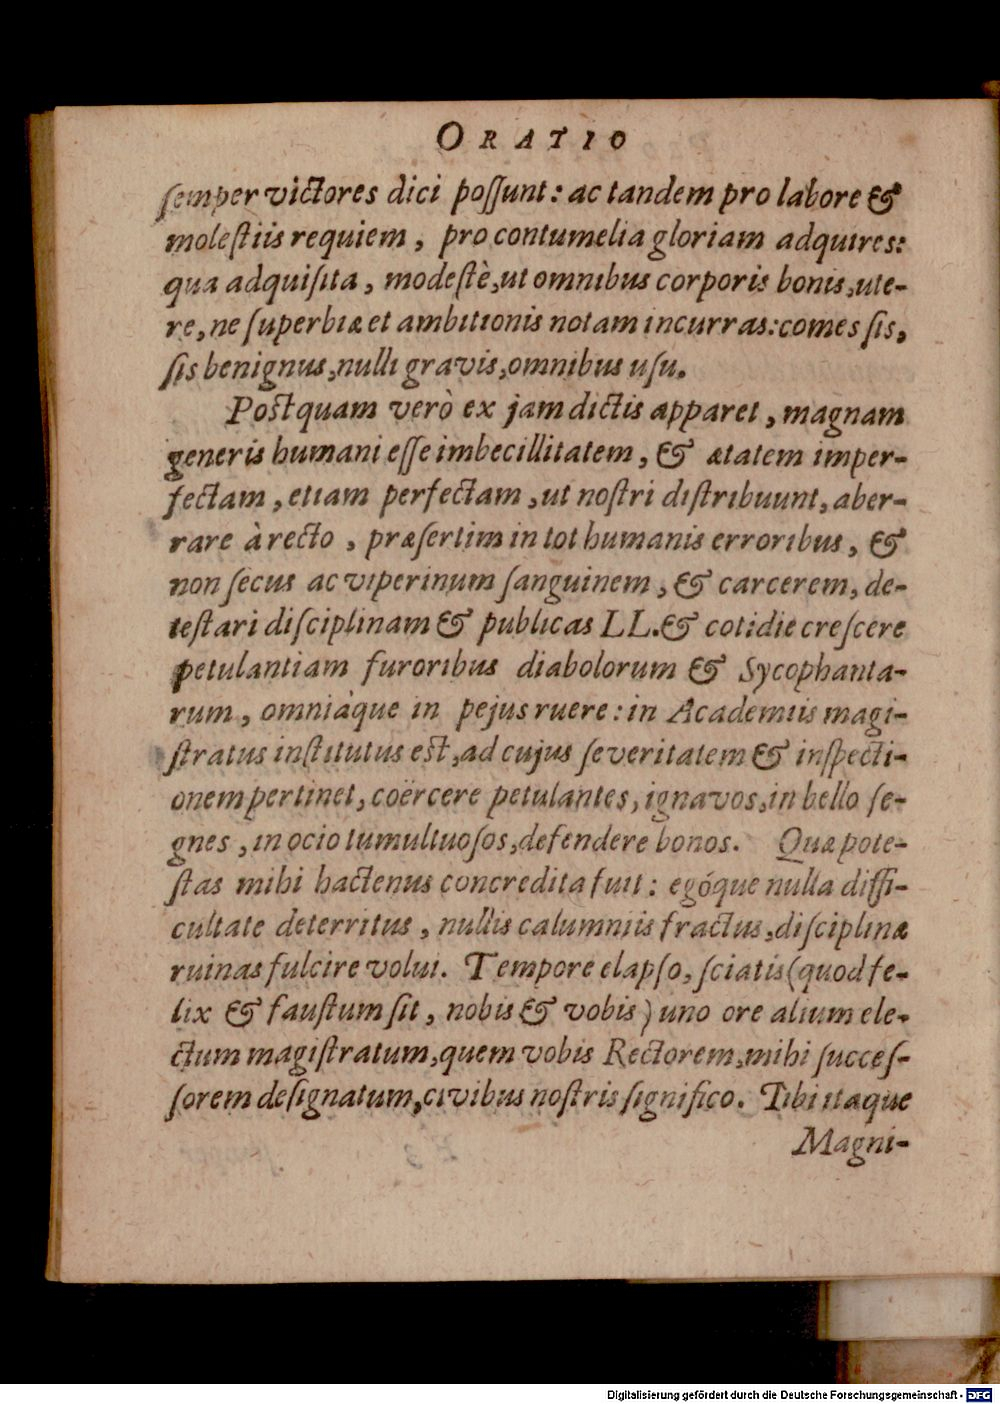 ORATIO
ſemper victores dici poſſunt: ac tandem pro labore &
moleſtiis requiem, pro contumelia gloriam adquires:
qua adquiſita, modeſtè, ut omnibus corporis bonis, ute-
re, ne ſuperbiæ et ambitionis notam incurras: comes ſis,
ſis benignus, nulli gravis, omnibus uſu.
Poſtquam verò ex jam dictis apparet, magnam
generis humani eſſe imbecillitatem, & ætatem imper-
fectam, etiam perfectam, ut noſtri diſtribuunt, aber-
rare à recto, præſertim in tot humanis erroribus, &
non ſecus ac viperinum ſanguinem, & carcerem, de-
teſtari diſciplinam & publicas LL. & cotidie creſcere
petulantiam furoribus diabolorum & Sycophanta-
rum, omniàque in pejus ruere: in Academiis magi-
ſtratus inſtitutus eſt, ad cujus ſeveritatem & inſpecti-
onem pertinet, coërcere petulantes, ignavos, in bello ſe-
gnes, in ocio tumultuoſos, defendere bonos. Quæ pote-
ſtas mihi hactenus concredita fuit: egóque nulla diffi-
cultate deterritus, nullis calumniis fractus, diſciplinæ
ruinas fulcire volui. Tempore elapſo, ſciatis (quod fe-
lix & fauſtum ſit, nobis & vobis) uno ore alium ele-
ctum magiſtratum, quem vobis Rectorem, mihi ſucceſ-
ſorem deſignatum, civibus noſtris ſignifico. Tibi itaque
Magni-
Digitalisierung gefördert durch die Deutsche Forschungsgemeinschaft - DFG